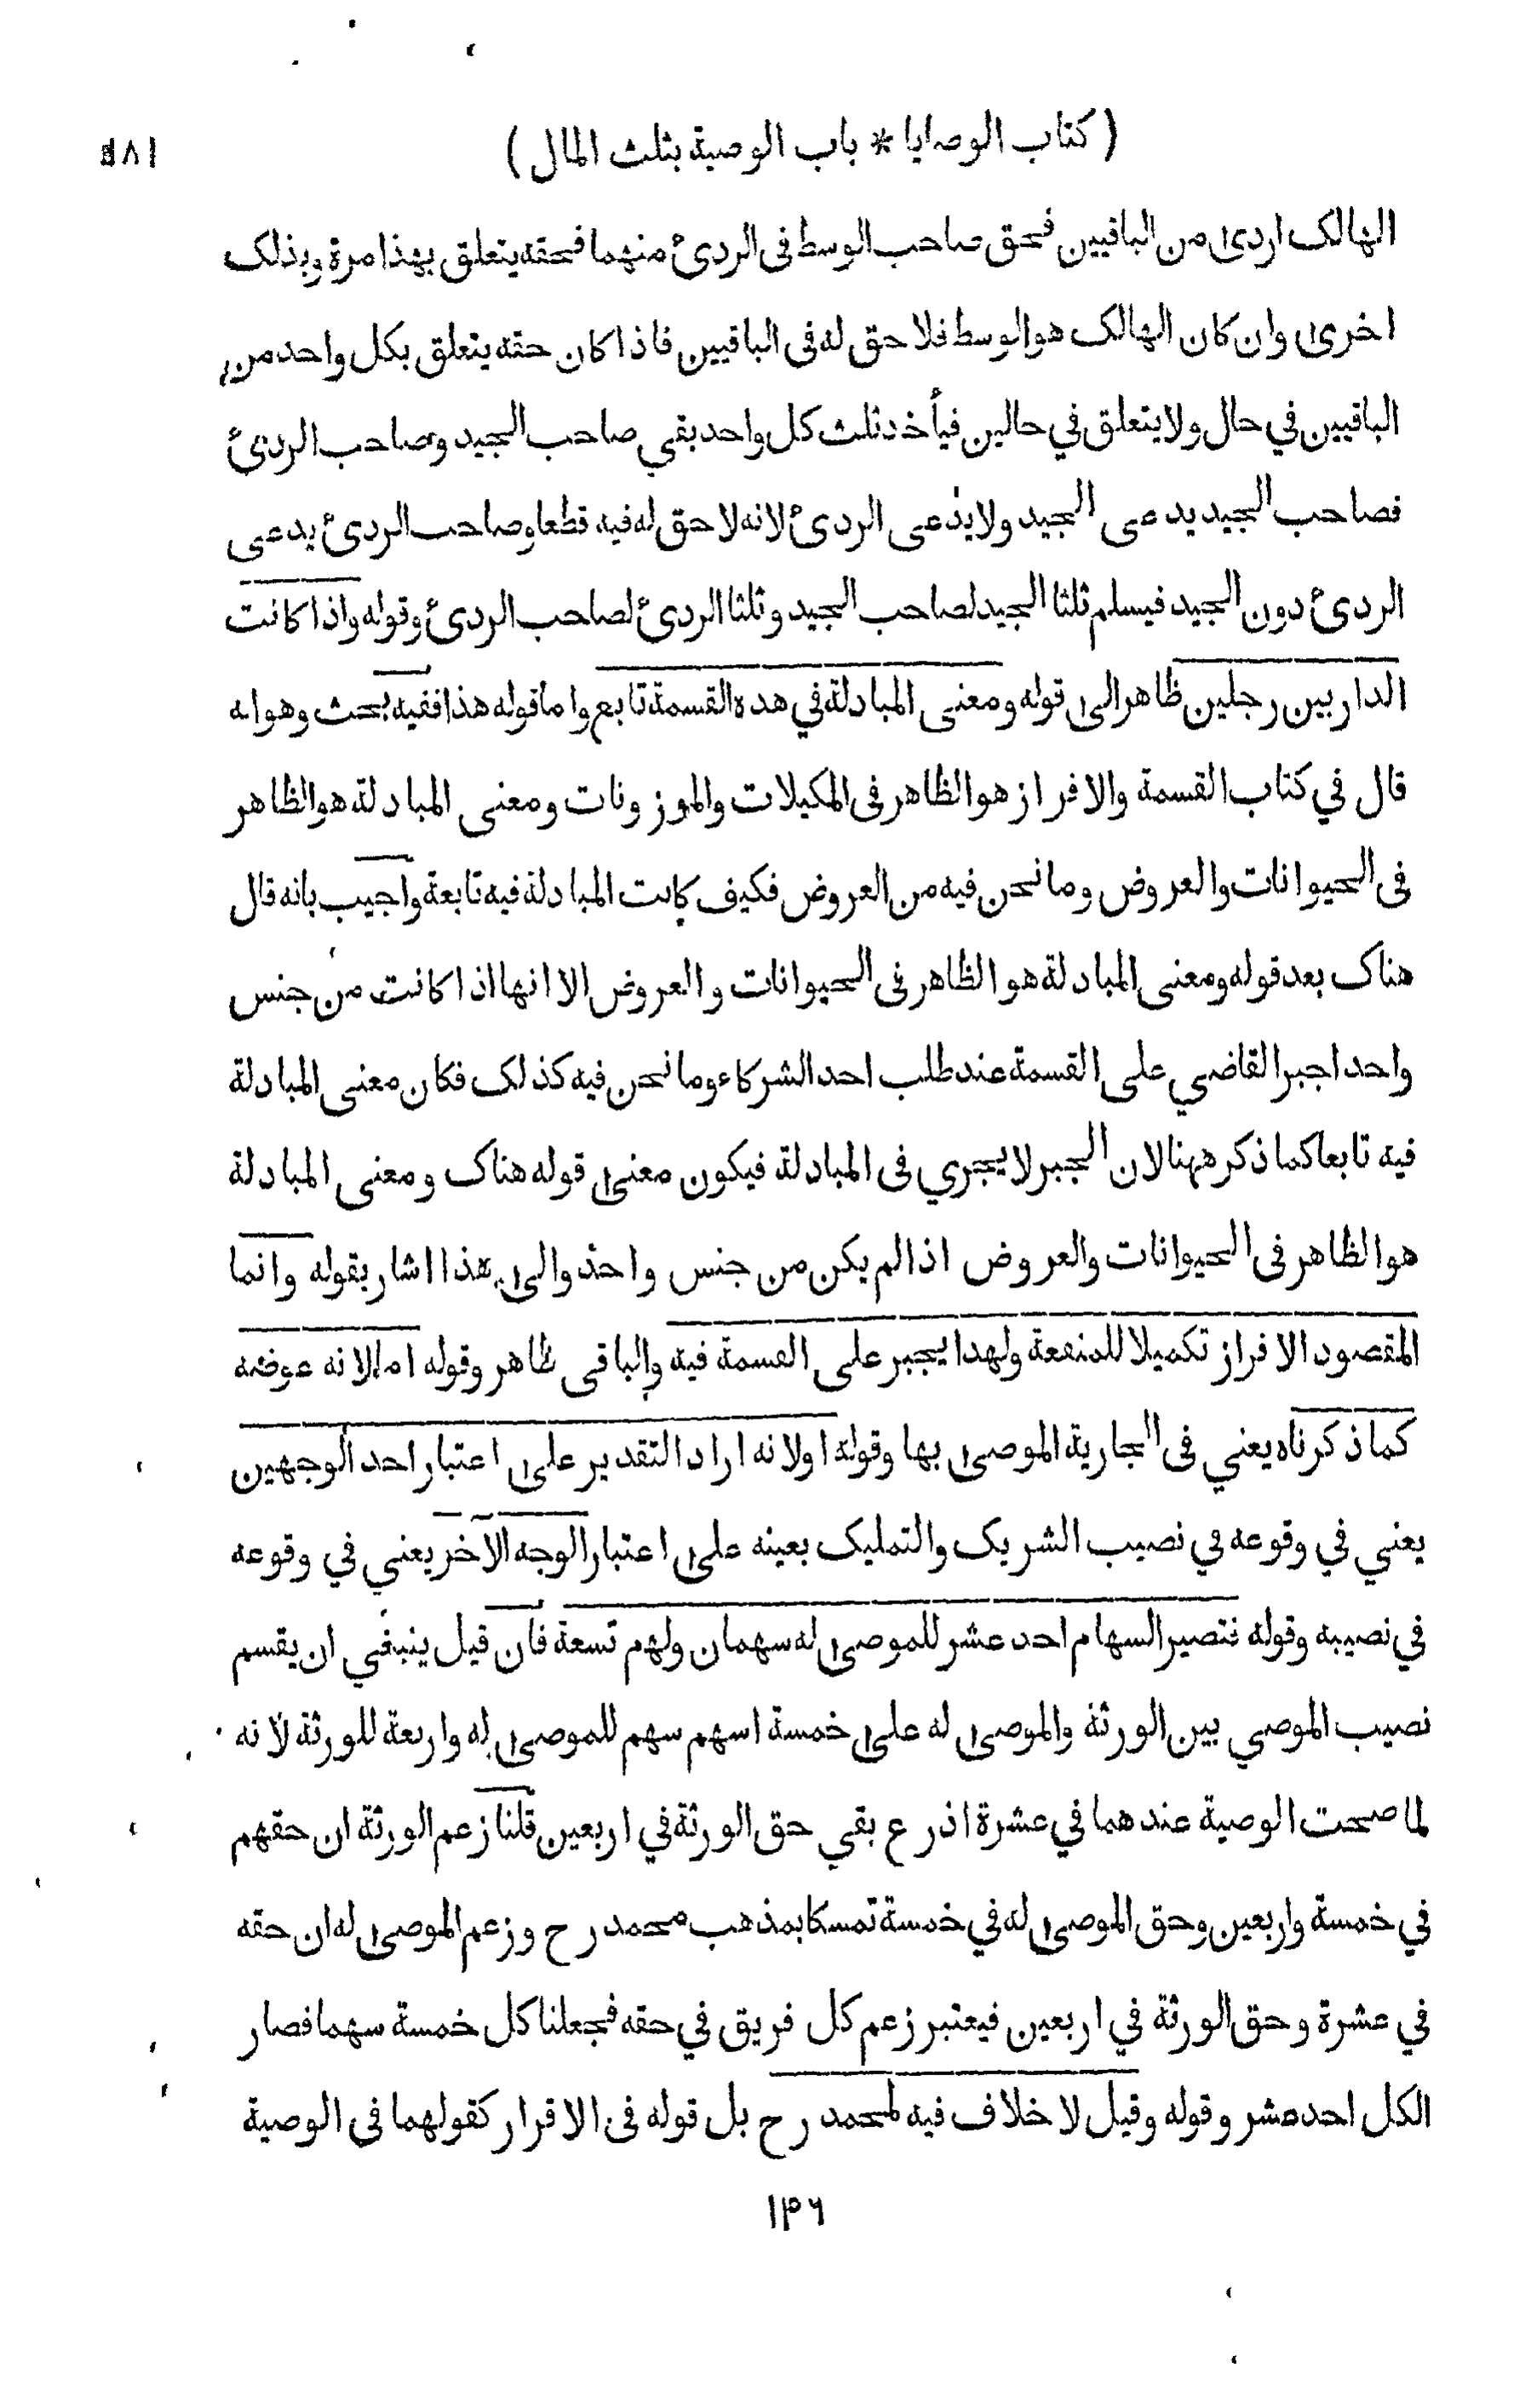 ( كتاب الوصايا * باب الوصية بثلث المال )
الهالك اردى من الباقيين فحق صاحب الوسط فى الردئ منهما فحقه يتعلق بهذا مرة وبذلك
اخرى وان كان الهالك هو الوسط فلا حق له فى الباقيين فاذا كان حقه يتعلق بكل واحد من
الباقيين في حال ولا يتعلق في حالين فيأخذ ثلث كل واحد بقي صاحب الجيد وصاحب الردئ
فصاحب الجيد يدعى الجيد ولا يدعى الردئ لانه لا حق له فيه قطعا وصاحب الردئ يدعى
الردئ دون الجيد فيسلم ثلثا الجيد لصاحب الجيد وثلثا الردئ لصاحب الردئ وقوله واذا كانت
الدار بين رجلين ظاهر الى قوله ومعنى المبادلة في هذه القسمة تابع واما قوله هذا ففيه بحث وهو انه
قال في كتاب القسمة والافراز هو الظاهر فى المكيلات والموزونات ومعنى المبادلة هو الظاهر
فى الحيوانات والعروض وما نحن فيه من العروض فكيف كانت المبادلة فيه تابعة واجيب بانه قال
هناك بعد قوله ومعنى المبادلة هو الظاهر فى الحيوانات والعروض الا انها اذا كانت من جنس
واحد اجبر القاضي على القسمة عند طلب احد الشركاء وما نحن فيه كذلك فكان معنى المبادلة
فيه تابعا كما ذكر ههنا لان الجبر لا يجري فى المبادلة فيكون معنى قوله هناك ومعنى المبادلة
هو الظاهر فى الحيوانات والعروض اذا لم يكن من جنس واحد والى هذا اشار بقوله وانما
المقصود الافراز تكميلا للمنفعة ولهذا يجبر على القسمة فيه والباقى ظاهر وقوله اما لانه عوضه
كما ذكرناه يعني فى الجارية الموصى بها وقوله او لانه اراد التقدير على اعتبار احد الوجهين
يعني في وقوعه في نصيب الشريك والتمليك بعينه على اعتبار الوجه الآخر يعني في وقوعه
في نصيبه وقوله فتصير السهام احد عشر للموصى له سهمان ولهم تسعة فان قيل ينبغي ان يقسم
نصيب الموصي بين الورثة والموصى له على خمسة اسهم سهم للموصى له واربعة للورثة لانه
لما صحت الوصية عندهما في عشرة اذرع بقي حق الورثة في اربعين قلنا زعم الورثة ان حقهم
في خمسة واربعين وحق الموصى له في خمسة تمسكا بمذهب محمد رح وزعم الموصى له ان حقه
في عشرة وحق الورثة في اربعين فيعتبر زعم كل فريق في حقه فجعلنا كل خمسة سهما فصار
الكل احد عشر وقوله وقيل لا خلاف فيه لمحمد رح بل قوله فى الاقرار كقولهما فى الوصية